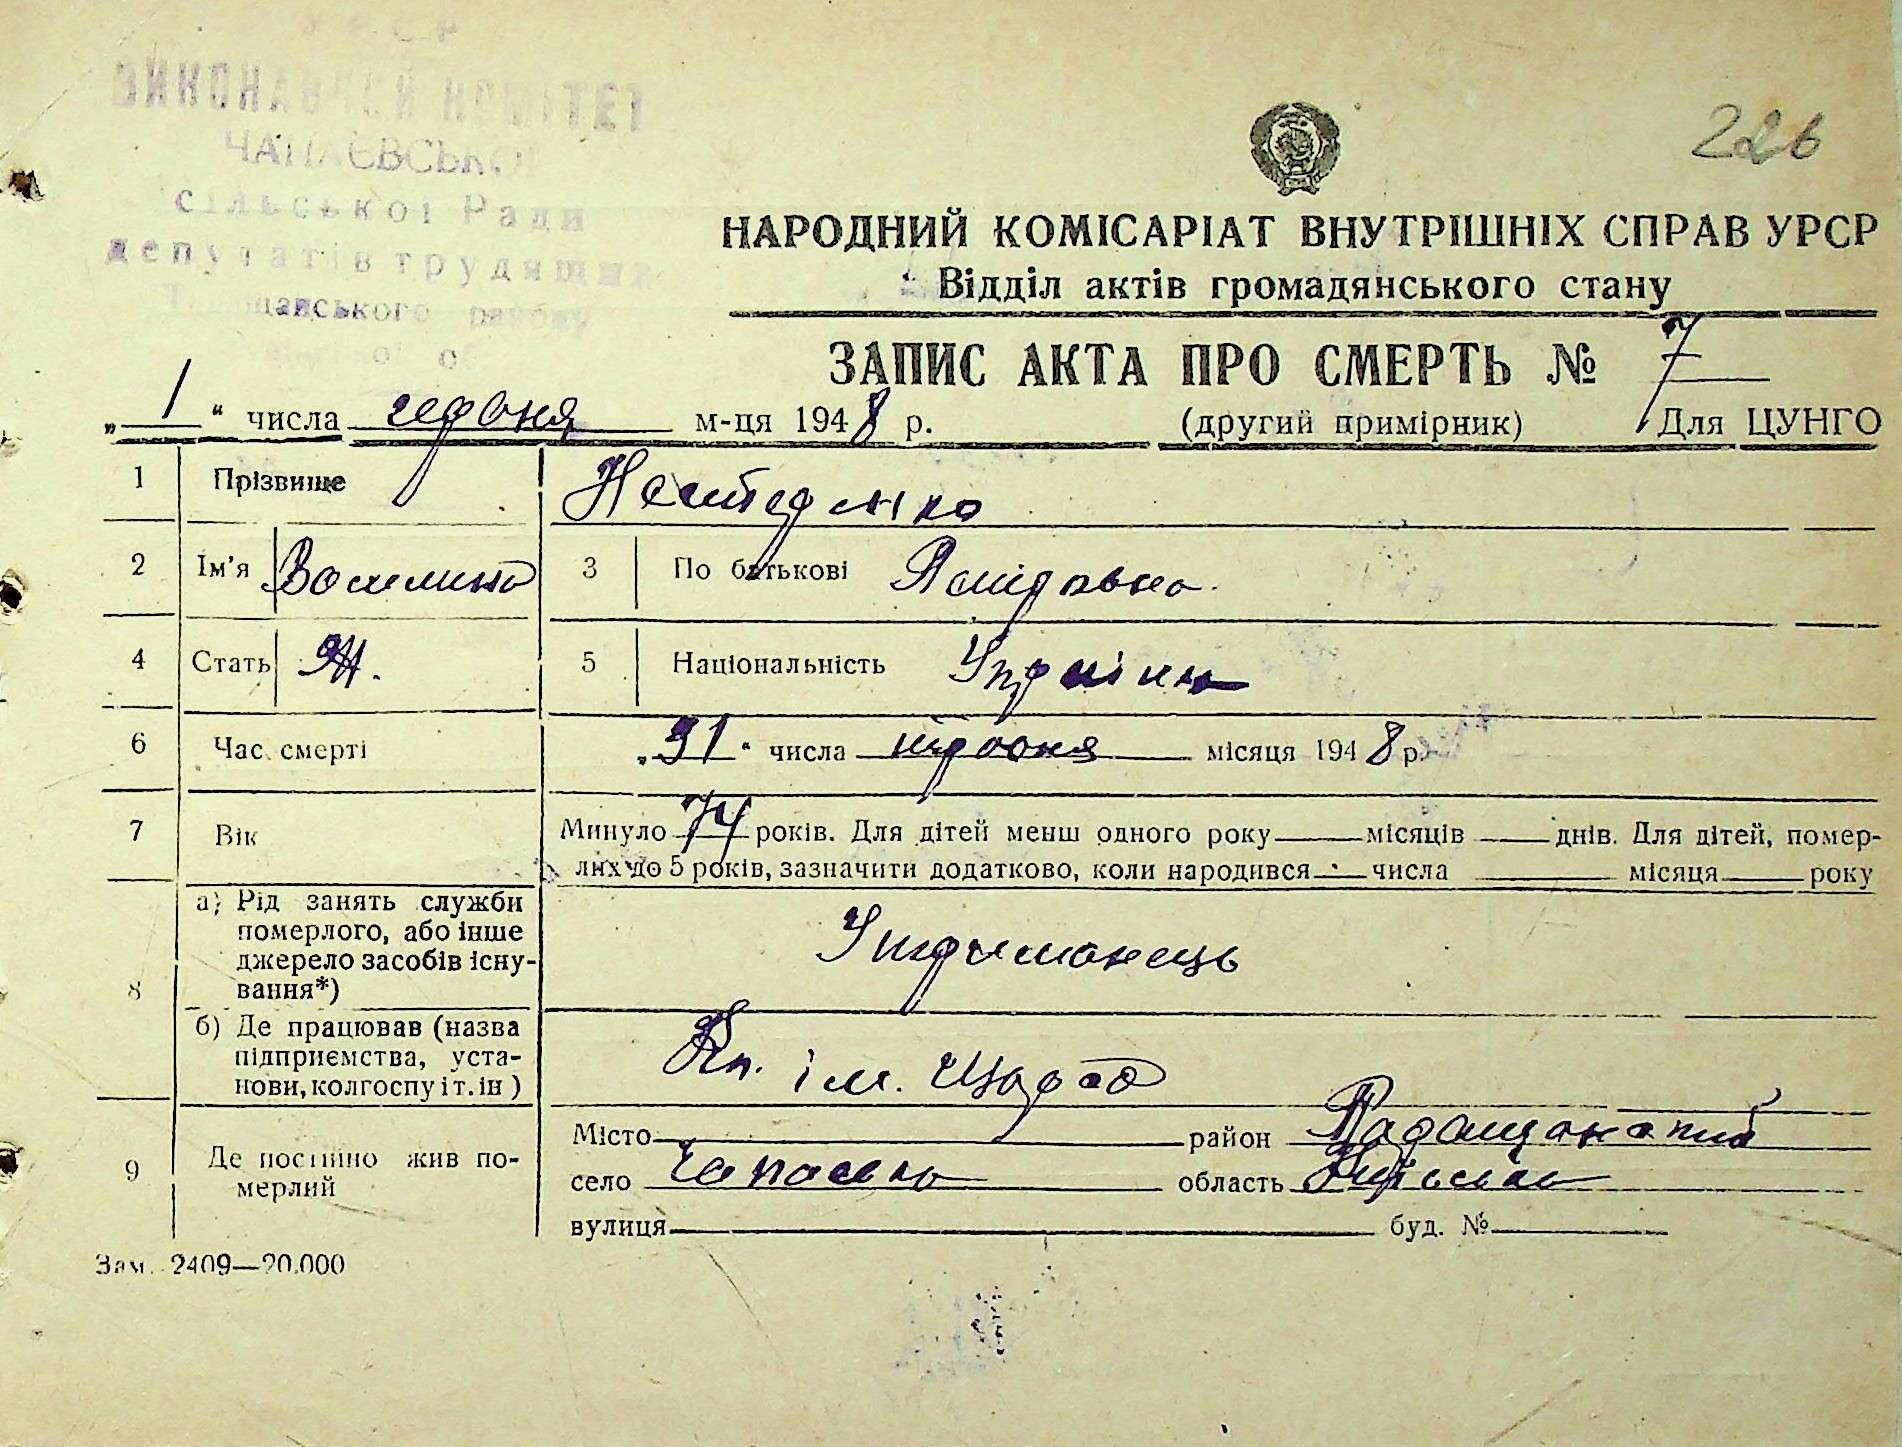 ВИКОНАВЧИЙ КОМІТЕТ
ЧАПАЄВСЬКОЇ
сільської Ради
депутатів трудящих
району
226
НАРОДНИЙ КОМІСАРІАТ ВНУТРІШНІХ СПРАВ УРСР
Відділ актів громадянського стану
ЗАПИС АКТА ПРО СМЕРТЬ № 7
„ 1 “ числа червня м-ця 1948 р. (другий примірник) Для ЦУНГО
1 Прізвище Нестеренко
2 Ім'я Василина 3 По батькові
4 Стать Ж. 5 Національність Українка
6 Час смерті „31“ числа червня місяця 1948 р.
7 Вік Минуло 74 років. Для дітей менш одного року місяців днів. Для дітей, помер-
лих до 5 років, зазначити додатково, коли народився числа місяця року
8 а) Рід занять служби
померлого, або інше
джерело засобів існу-
вання*) Утриманець
б) Де працював (назва
підприємства, уста-
нови, колгоспу і т. ін) Кл. ім. Щорса
9 Де постійно жив по-
мерлий
Місто район Таращанський
село Чапаєвка область Київська
вулиця буд. №
Зам. 2409—20.000